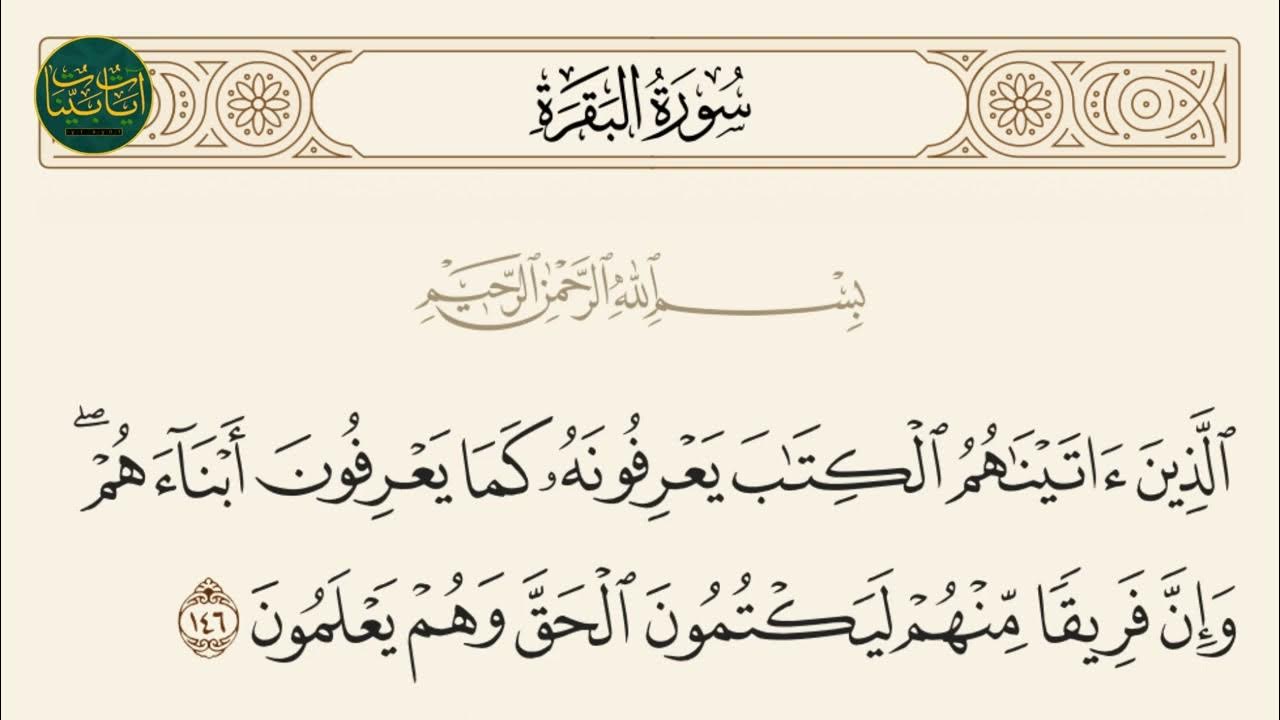 آيات بينات
سُورَةُ البَقَرَةِ
بِسْمِ ٱللَّهِ ٱلرَّحْمَٰنِ ٱلرَّحِيمِ
ٱلَّذِينَ ءَاتَيْنَٰهُمُ ٱلْكِتَٰبَ يَعْرِفُونَهُۥ كَمَا يَعْرِفُونَ أَبْنَآءَهُمْ ۖ
وَإِنَّ فَرِيقًا مِّنْهُمْ لَيَكْتُمُونَ ٱلْحَقَّ وَهُمْ يَعْلَمُونَ ١٤٦